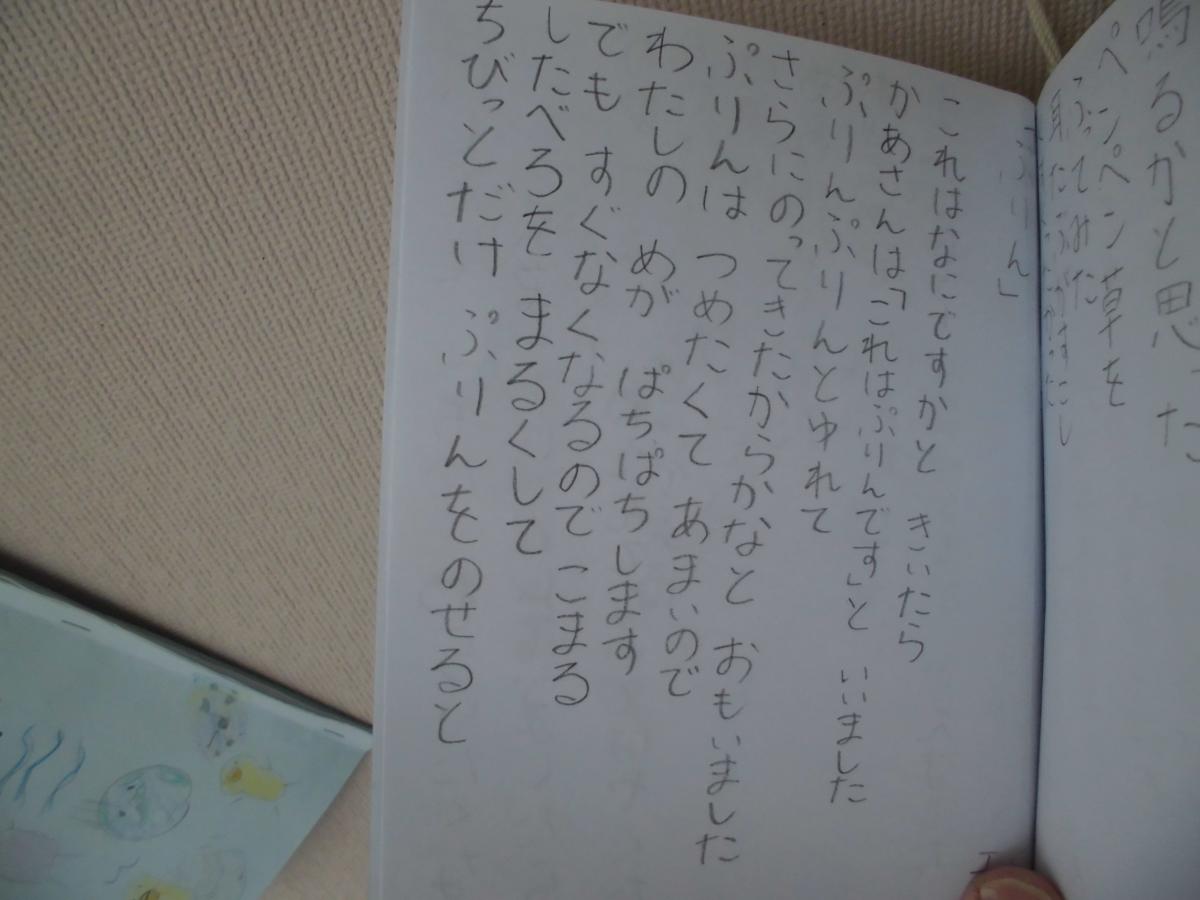 鳴るかと思った
ペンペン草を
ふってみた
「ぷりん」
これはなにですかと きいたら
かあさんは「これはぷりんです」と いいました
ぷりんぷりんとゆれて
さらにのってきたからかなと おもいました
ぷりんは つめたくて あまいので
わたしの めが ぱちぱちします
でも すぐなくなるので こまる
したべろを まるくして
ちびっとだけ ぷりんをのせると